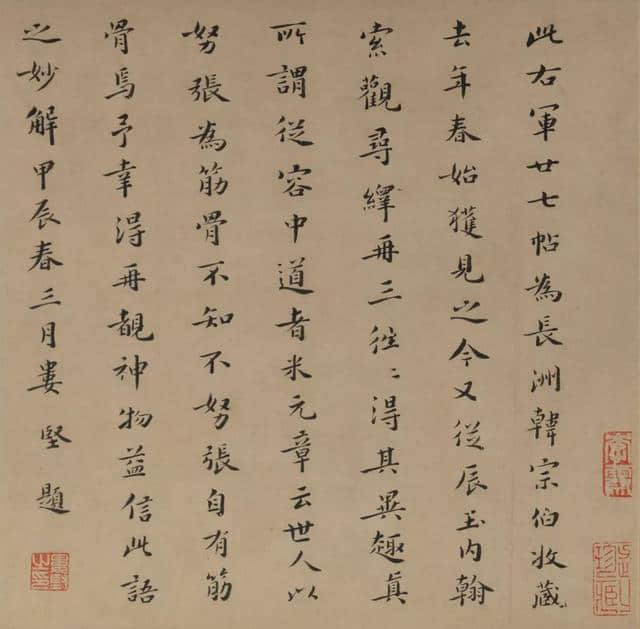 此右軍廿七帖為長洲韓宗伯收藏
去年春始獲見之今又從辰玉內翰
索觀尋繹再三往〻得其異趣真
所謂從容中道者米元章云世人以
努張為筋骨不知不努張自有筋
骨焉予幸得再覩神物益信此語
之妙解甲辰春三月婁堅題